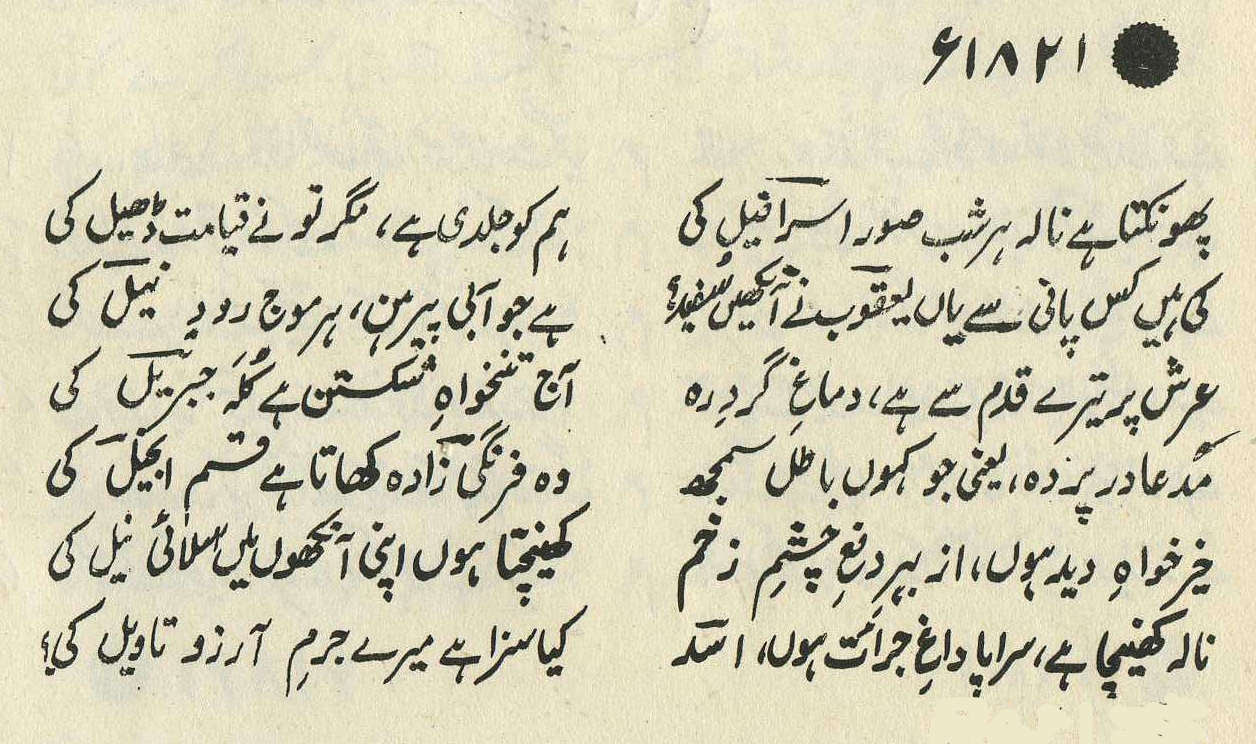 ۱۸۲۱ء
پھونکتا ہے نالہ ہر شب صور اسرافیل کی ہم کو جلدی ہے، مگر تو نے قیامت ڈھیل کی
کی ہیں کس پانی سے یاں یعقوب نے آنکھیں سفید؟ ہے جو آبی پیرہن، ہر موج رودِ نیل کی
عرش پر تیرے قدم سے ہے، دماغِ گردِ رہ آج تنخواہِ شکستن ہے کُلَہ جبریل کی
مُدعا در پردہ، یعنی جو کہوں باطل سمجھ وہ فرنگی زادہ کھاتا ہے قسم انجیل کی
خیر خواہِ دید ہوں، از بہرِ دفعِ چشمِ زخم کھینچتا ہوں اپنی آنکھوں میں سلائی نیل کی
نالہ کھینچا ہے، سراپا داغِ جرأت ہوں، اسدؔ کیا سزا ہے میرے جرمِ آرزو تاویل کی؟